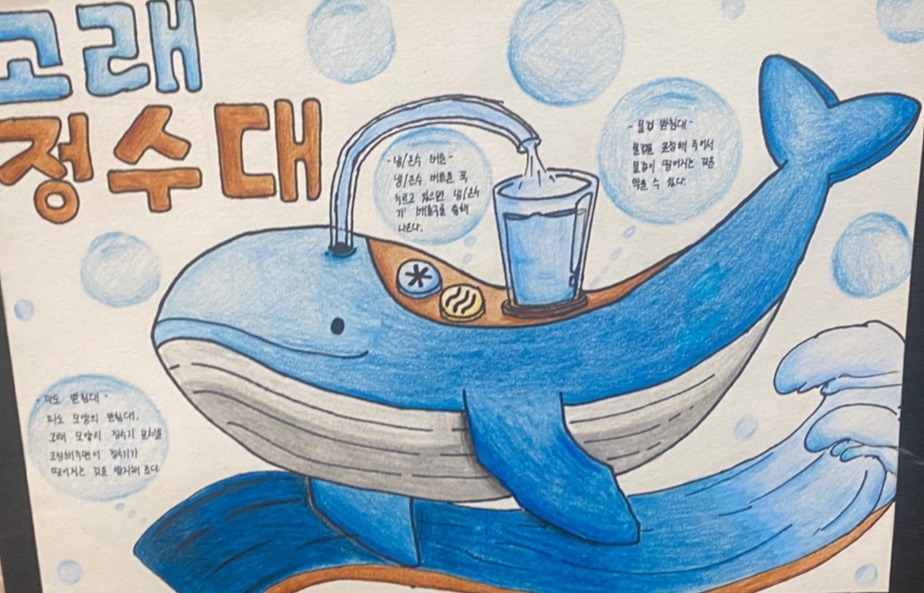 고래
정수대
- 냉/온수 버튼 -
냉/온수 버튼을 꾹
누르고 있으면 냉/온수
가 배출구를 통해
나온다.
- 물컵 받침대 -
물컵을 고정해 주어서
물컵이 떨어지는 것을
막을 수 있다.
- 파도 받침대 -
파도 모양의 받침대.
고래 모양의 정수기 본체를
고정해주면서 정수기가
떨어지는 것을 방지해 준다.